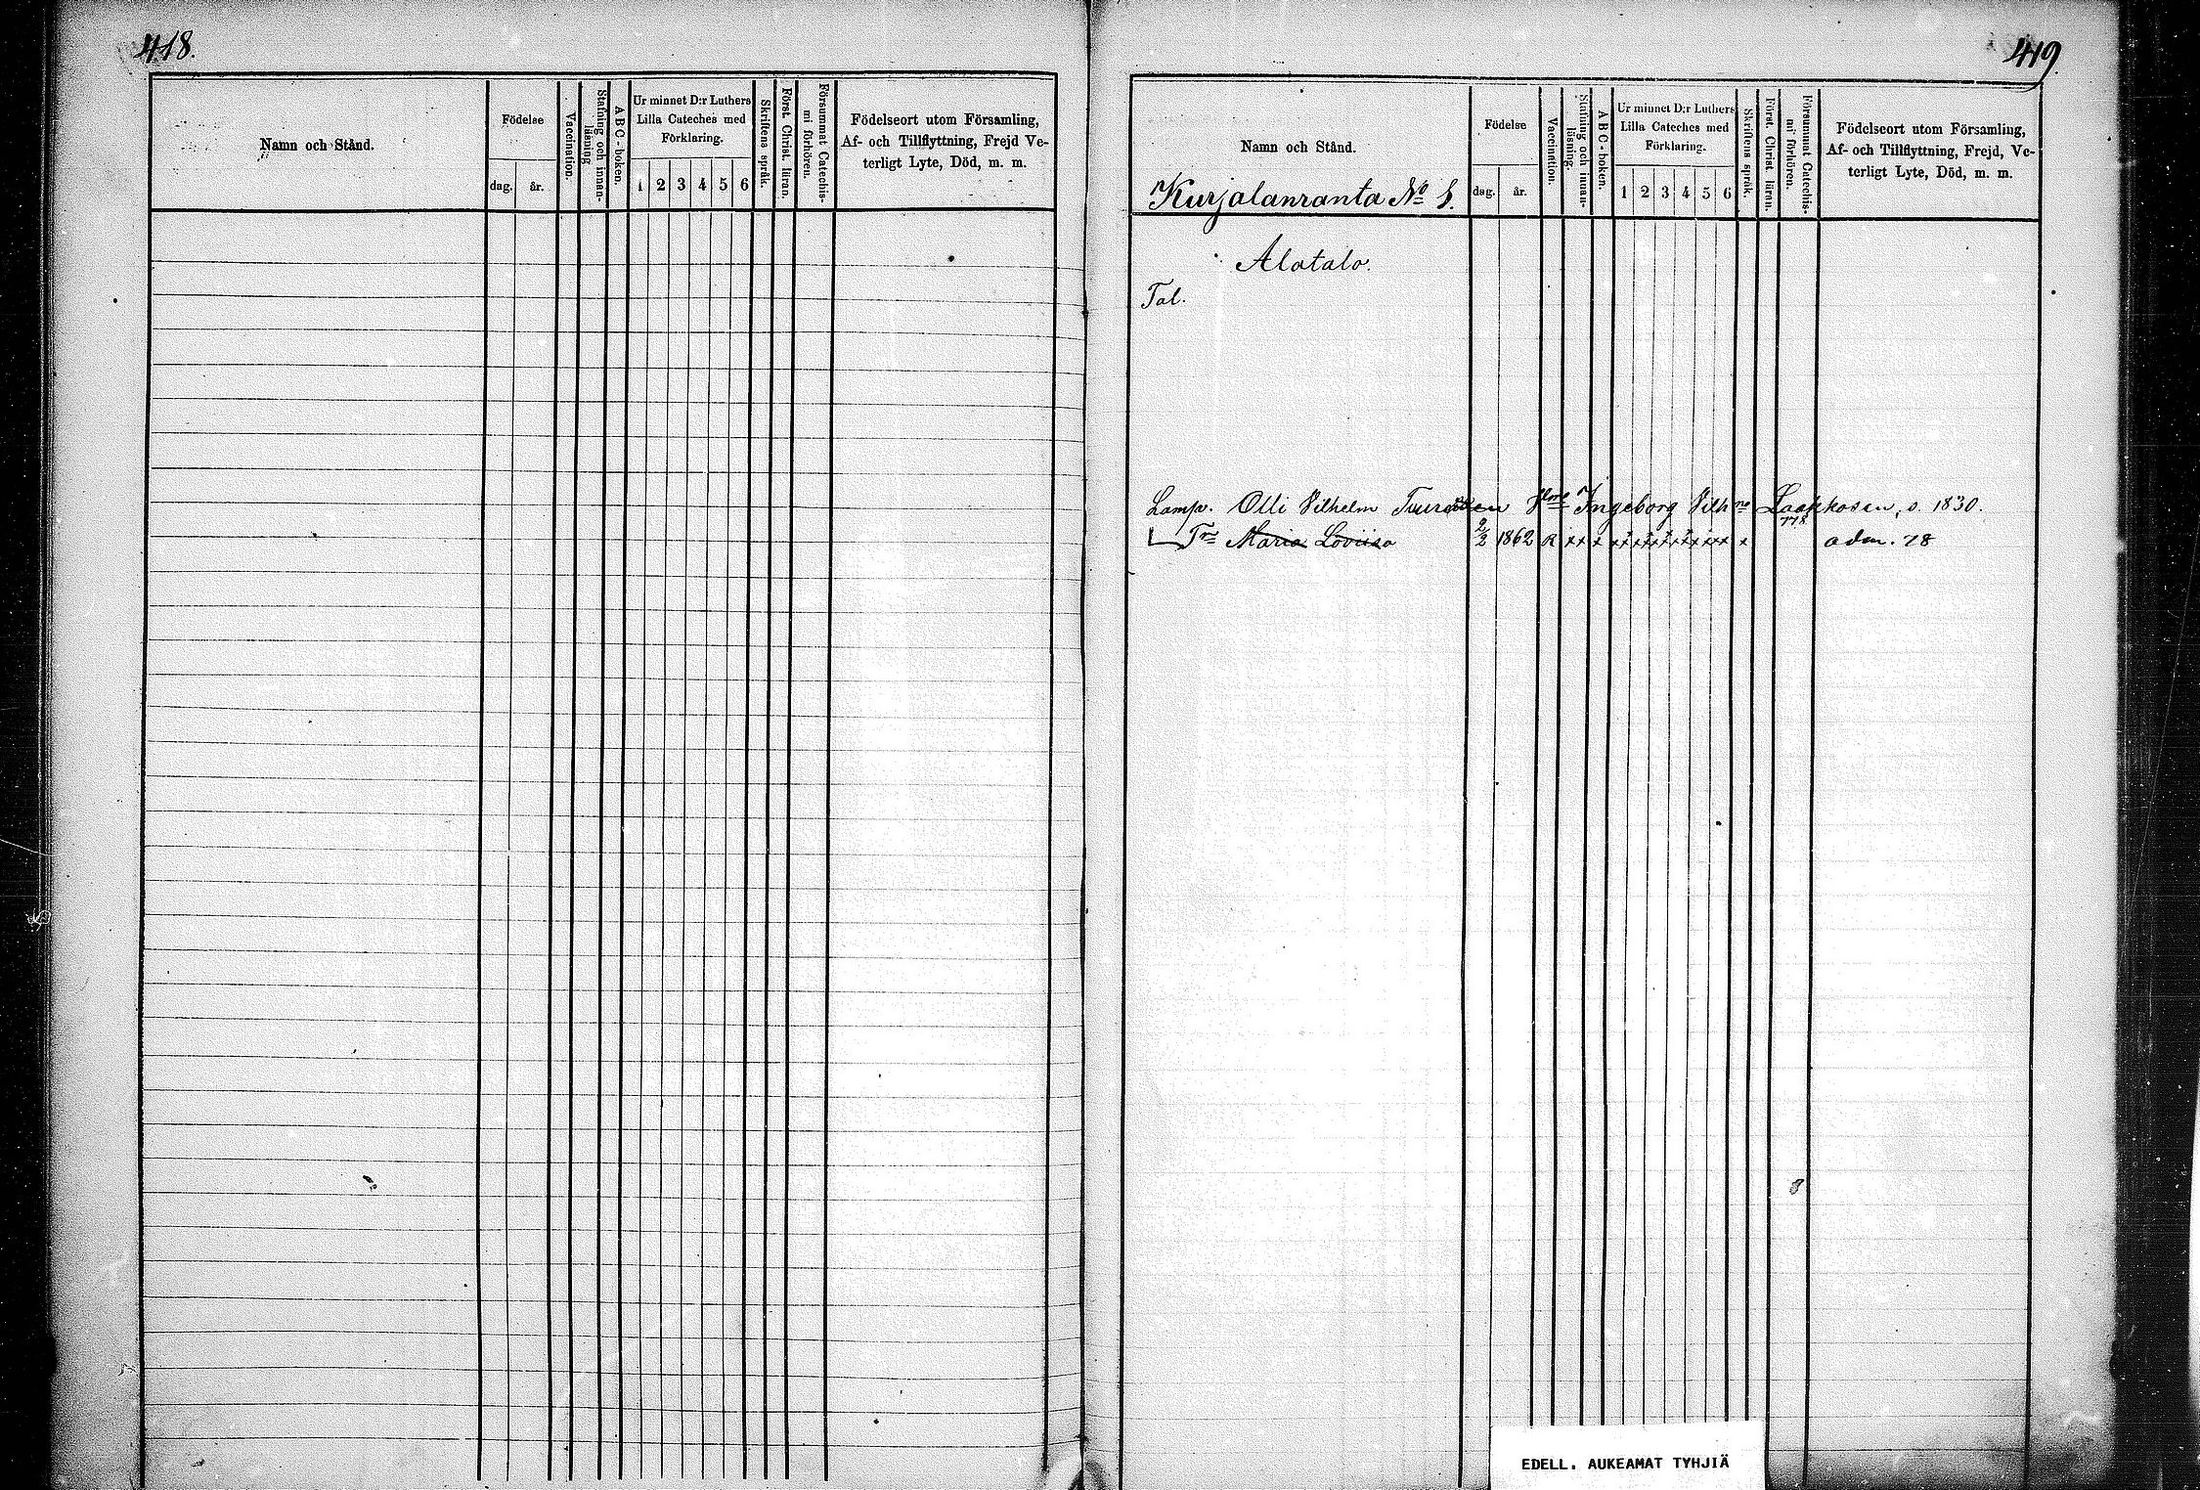 418.
Namn och Stånd.
Födelse
dag.
år.
Vaccination.
Stafning och innan-
läsning
ABC-boken.
Ur minnet D:r Luthers
Lilla Cateches med
Förklaring.
1 2 3 4 5 6
Skriftens språk.
Först. Christ. läran.
Försummat Catechis-
mi förhören.
Födelseort utom Församling,
Af- och Tillflyttning, Frejd Ve-
terligt Lyte, Död, m. m.
419.
Namn och Stånd.
Kurjalanranta No
Födelse
dag.
år.
Vaccination.
Stafning och innan-
läsning.
ABC-boken.
Ur minnet D:r Luthers
Lilla Cateches med
Förklaring.
1 2 3 4 5 6
Skriftens språk.
Först. Christ. läran.
Försummat Catechis-
mi förhören.
Födelseort utom Församling,
Af- och Tillflyttning, Frejd, Ve-
terligt Lyte, Död, m. m.
Alatalo.
Tal.
Lamp. Olli Vilhelm Ingeborg Vilh:ne Laakkosen, s. 1830.
T:r Maria Loviisa 2/2 1862 R xx x x
adm. 78
EDELL. AUKEAMAT TYHJIÄ